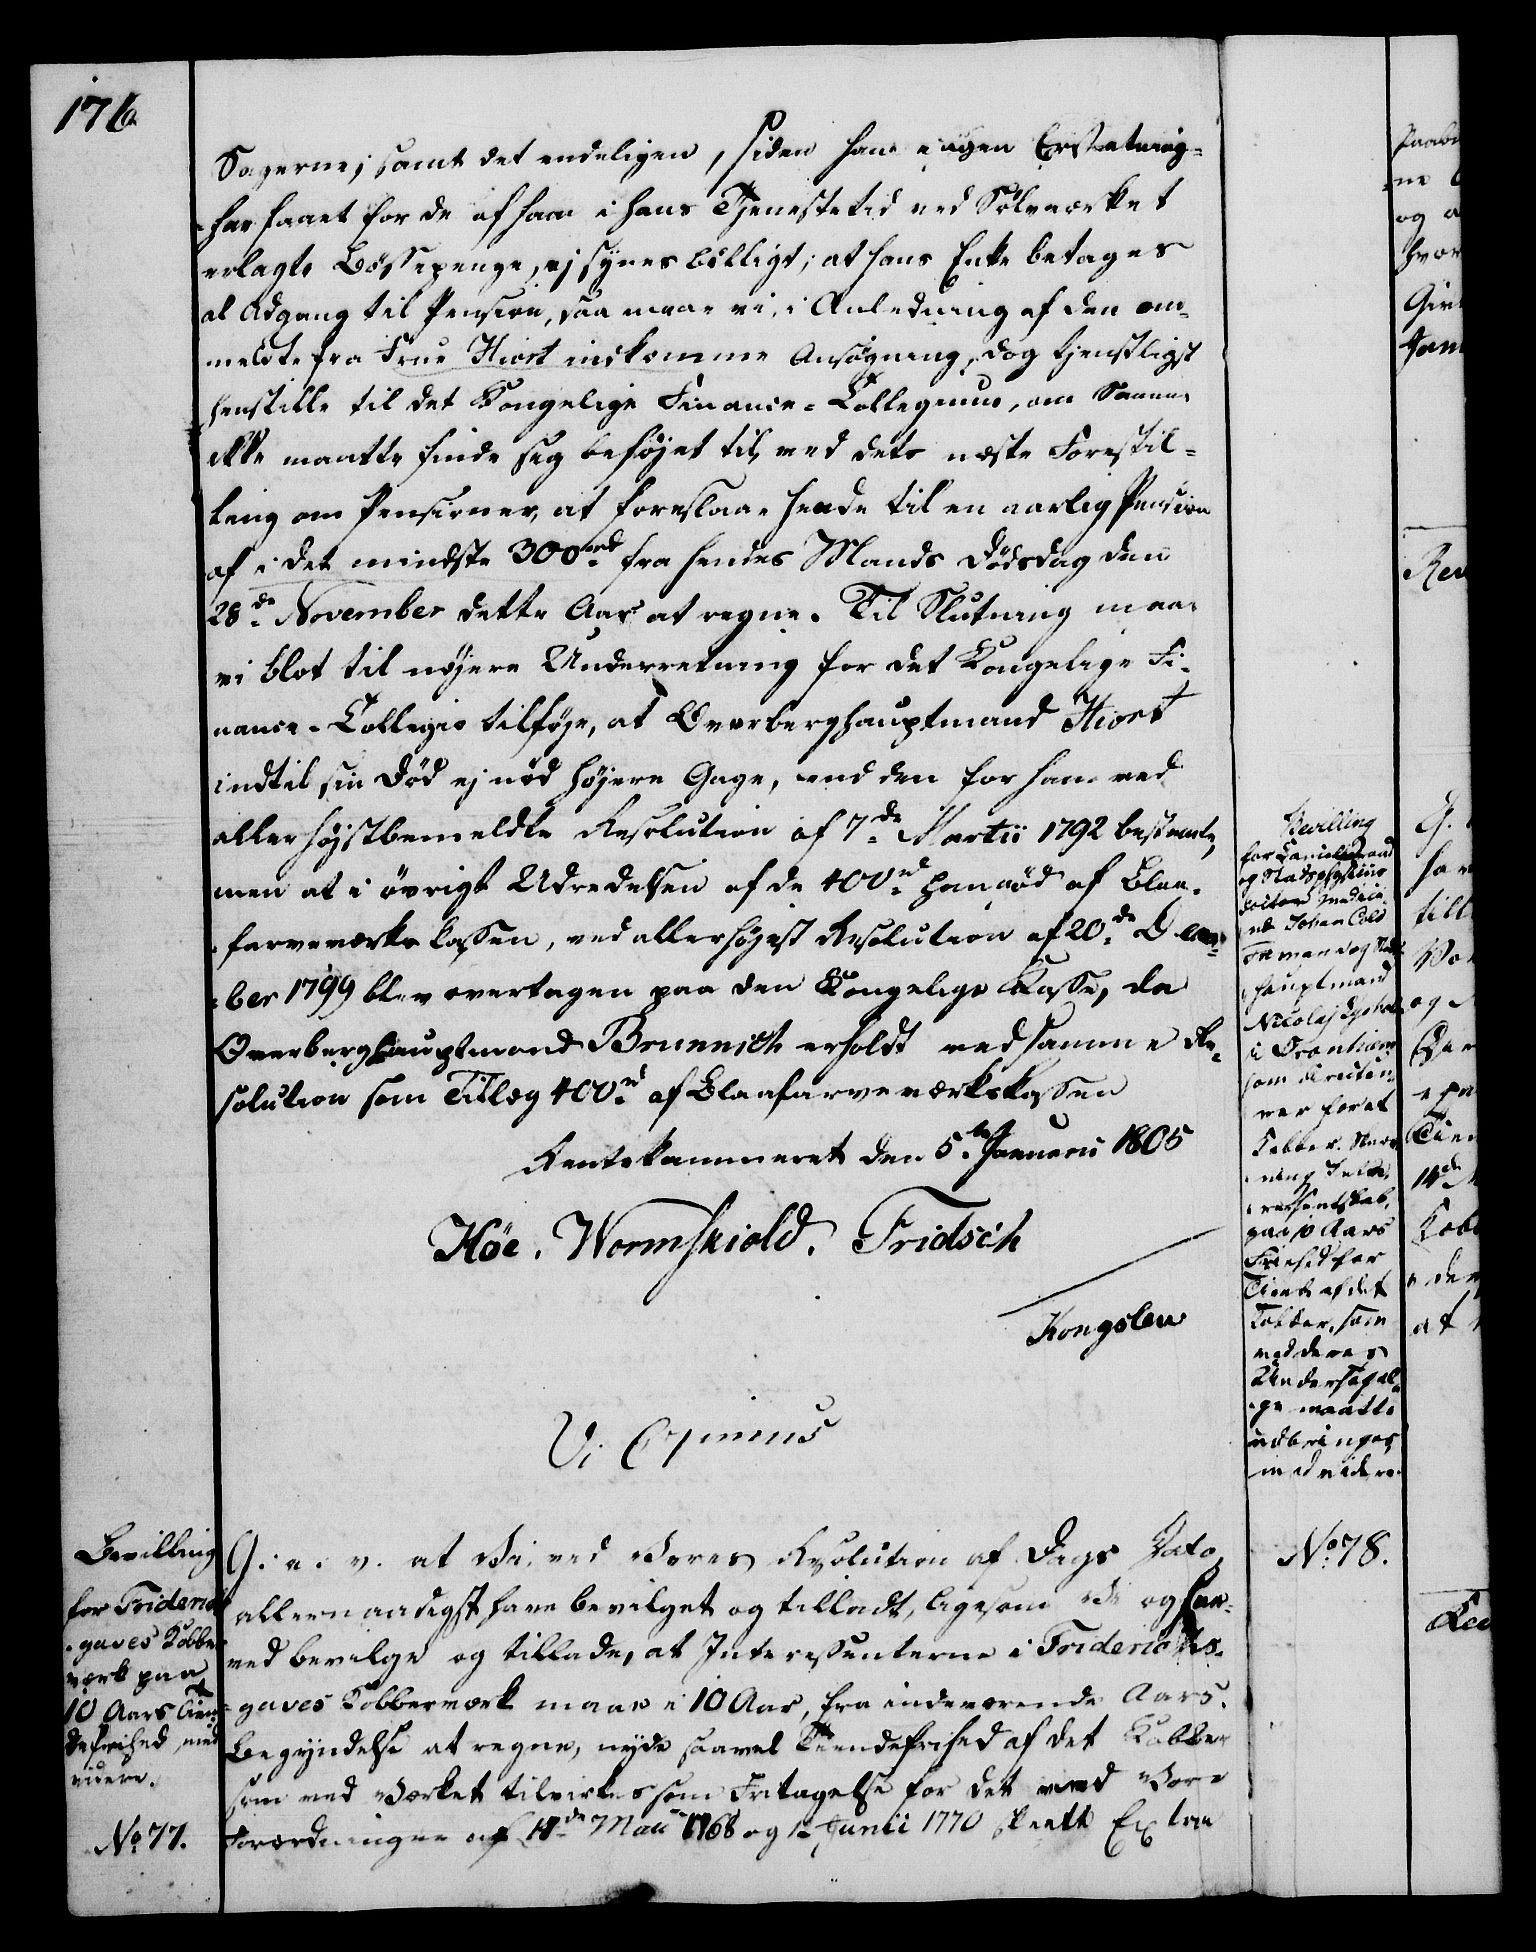 176
Sagerne; samt det endeligen, siden han ingen Erstatning
har faaet for de af ham i hans Tjenestetid ved Sølvværket
erlagte Bøssepenge, ej synes billigt, at hans Enke betages
al Adgang til Pension, saa maae vi, i Anledning af den om-
meldte fra Frue Hiort indkomne Ansøgning, dog tjenstligst
henstille til det Kongelige Finance-Collegium, om Samme
ikke maatte finde sig beføjet til, ved dets næste Forestil-
ling om Pensioner, at foreslaae hende til en aarlig Pension
af i det mindste 300 rd fra hendes Mands Dødsdag den
28de November dette Aar at regne. Til Slutning maae
vi blot til nøjere Underretning for det Kongelige Fi-
nance-Collegio tilføje, at Overberghauptmand Hiort
indtil sin Død ej nød højere Gage, end den for ham ved
allerhøjstbemeldte Resolution af 7de Martii 1792 bestemte,
men at i øvrigt Udredelsen af de 400 rd han nød af Blaa-
farveværks Cassen, ved allerhøjest Resolution af 20de Decem-
ber 1799 blev overtagen paa den Kongelige Kasse, da
Overberghauptmand Brunnich erholdt ved samme Re-
solution som Tillæg 400 rd af Blaafarveværkskassen
Rentekammeret den 5te Januarii 1805
Höe. Wormskiold. Fridsch
Kongslew
V. C 7 mus
Bevilling
for Friderichs
gaves Kobber
værk paa
10 Aars Tien-
defrihed, med
videre.
No 77.
G. a. v. at Vi, ved Vores Resolution af Dags Dato,
allernaadigst have bevilget og tilladt, ligesom Vi og her-
ved bevilge og tillade, at Interessenterne i Friderichs-
gaves Kobberværk maae i 10 Aar, fra indeværende Aars
Begyndelse at regne, nyde saavel Tiendefrihed af det Kobber
som ved Værket tilvirkes som Fritagelse for det ved Vore
Forordninger af 14de Maii 1768 og 1te Junii 1770 skeete Extra
Bevilling
for Cancelieraad
og Stadsphysicus
Doctor Medici-
næ Johan Cold
Feman og Stads-
hauptmand
Nicolaj
i Trontiem
som Directeu-
rer for et
Kobber
ning Inter-
essentskab,
paa 10 Aars
Friehed for
Tiende af det
Kobber, som
ved deres
Undersøgel-
ge maatte
udbringes,
med videre.
No 78.
ne
og
hvor
Jan
G.
har
till
og
14de
Kob
at